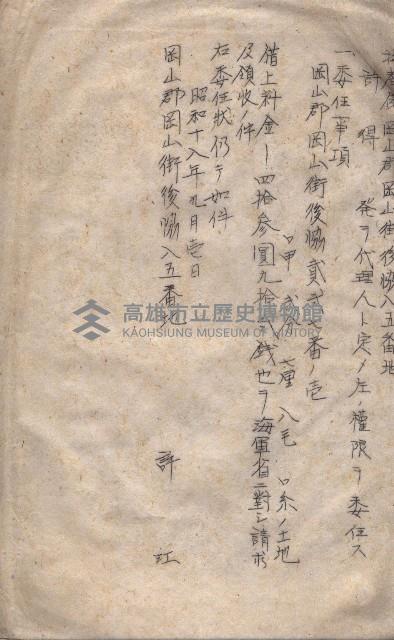 岡山郡岡山街後協八五番地
許得發ヲ代理人ト定メ左ノ權限ヲ委任ス
一、委任事項
岡山郡岡山街後協貳番ノ壱
口甲 七厘 八毛 口糸ノ土地
借上料金一四拾参圓九拾錢也ヲ海軍省ニ對シ請求
及領收ノ件
右委任狀仍テ如件
昭和十八年九月壱日
岡山郡岡山街後協八五番地
許 江
高雄市立歷史博物館
KAOHSIUNG MUSEUM OF HISTORY